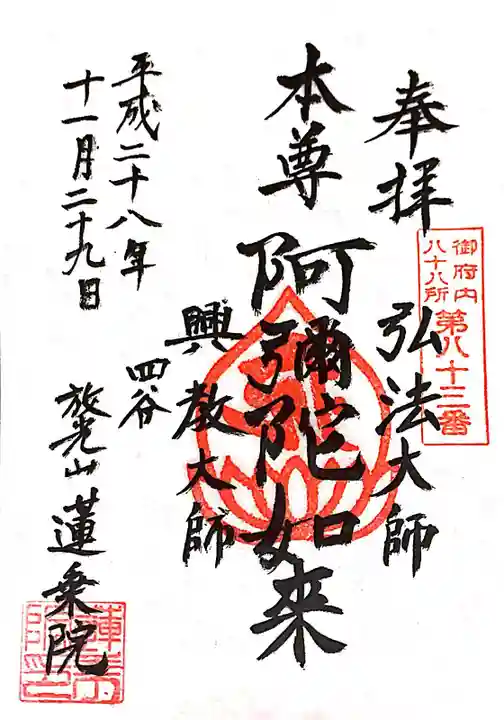 奉拝
御府内
八十八所
第八十三番
弘法大師
本尊
阿彌陀如来
興教大師
平成二十八年
十一月二十九日
四谷
放光山
蓮乗院
蓮乗
院印